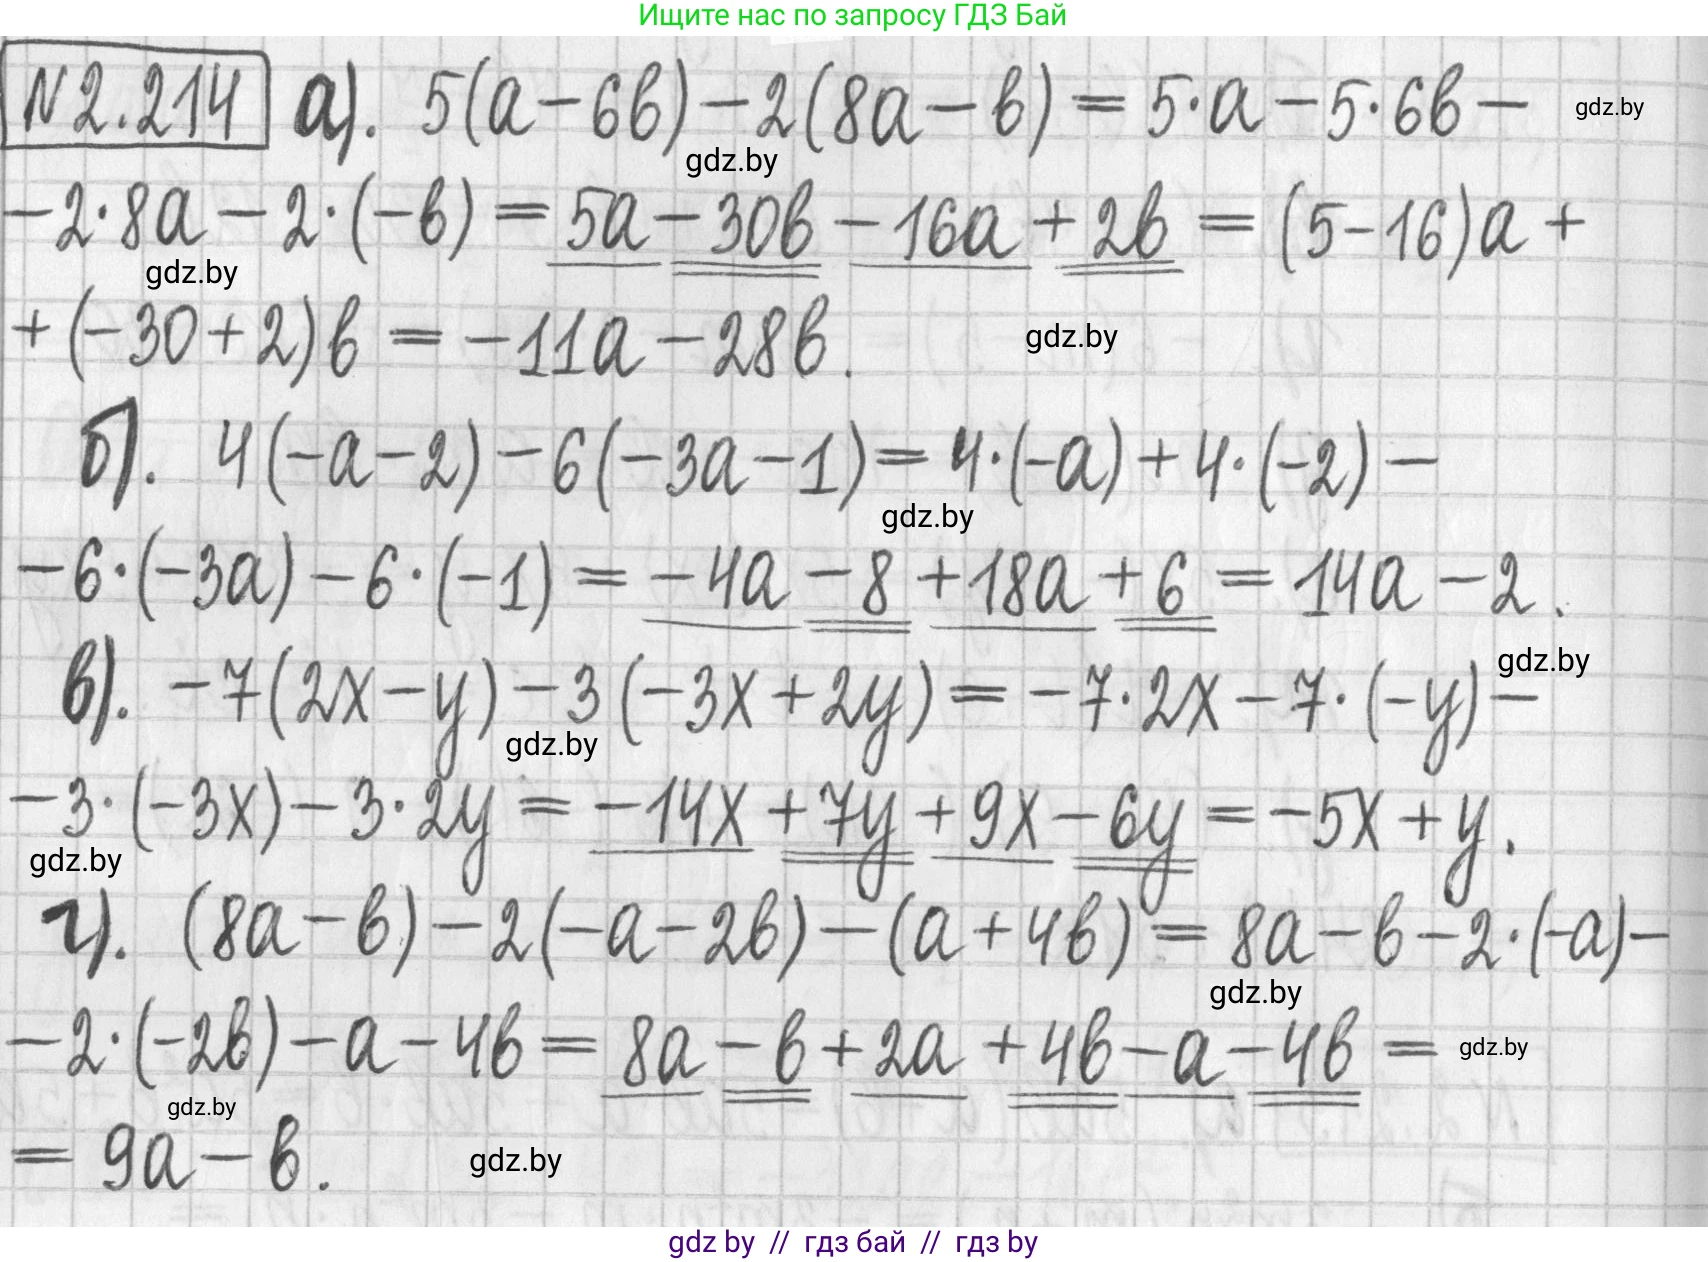 Ищите нас по запросу ГДЗ Бай
N2.214 а). 5(a-6b)-2(8a-b)=5·a-5·6b- gdz.by
gdz.by
-2·8a-2·(-b)=5a-30b-16a+2b=(5-16)a+
gdz.by
+(-30+2)b=-11a-28b. gdz.by
б). 4(-a-2)-6(-3a-1)=4·(-a)+4·(-2)-
gdz.by
-6·(-3a)-6·(-1)=-4a-8+18a+6=14a-2.
gdz.by
в). -7(2x-y)-3(-3x+2y)=-7·2x-7·(-y)-
gdz.by
-3·(-3x)-3·2y=-14x+7y+9x-6y=-5x+y.
gdz.by
г). (8a-b)-2(-a-2b)-(a+4b)=8a-b-2·(-a)-
gdz.by
-2·(-2b)-a-4b=8a-b+2a+4b-a-4b= gdz.by
gdz.by
=9a-b. gdz.by
gdz by // гдз бай // гдз by